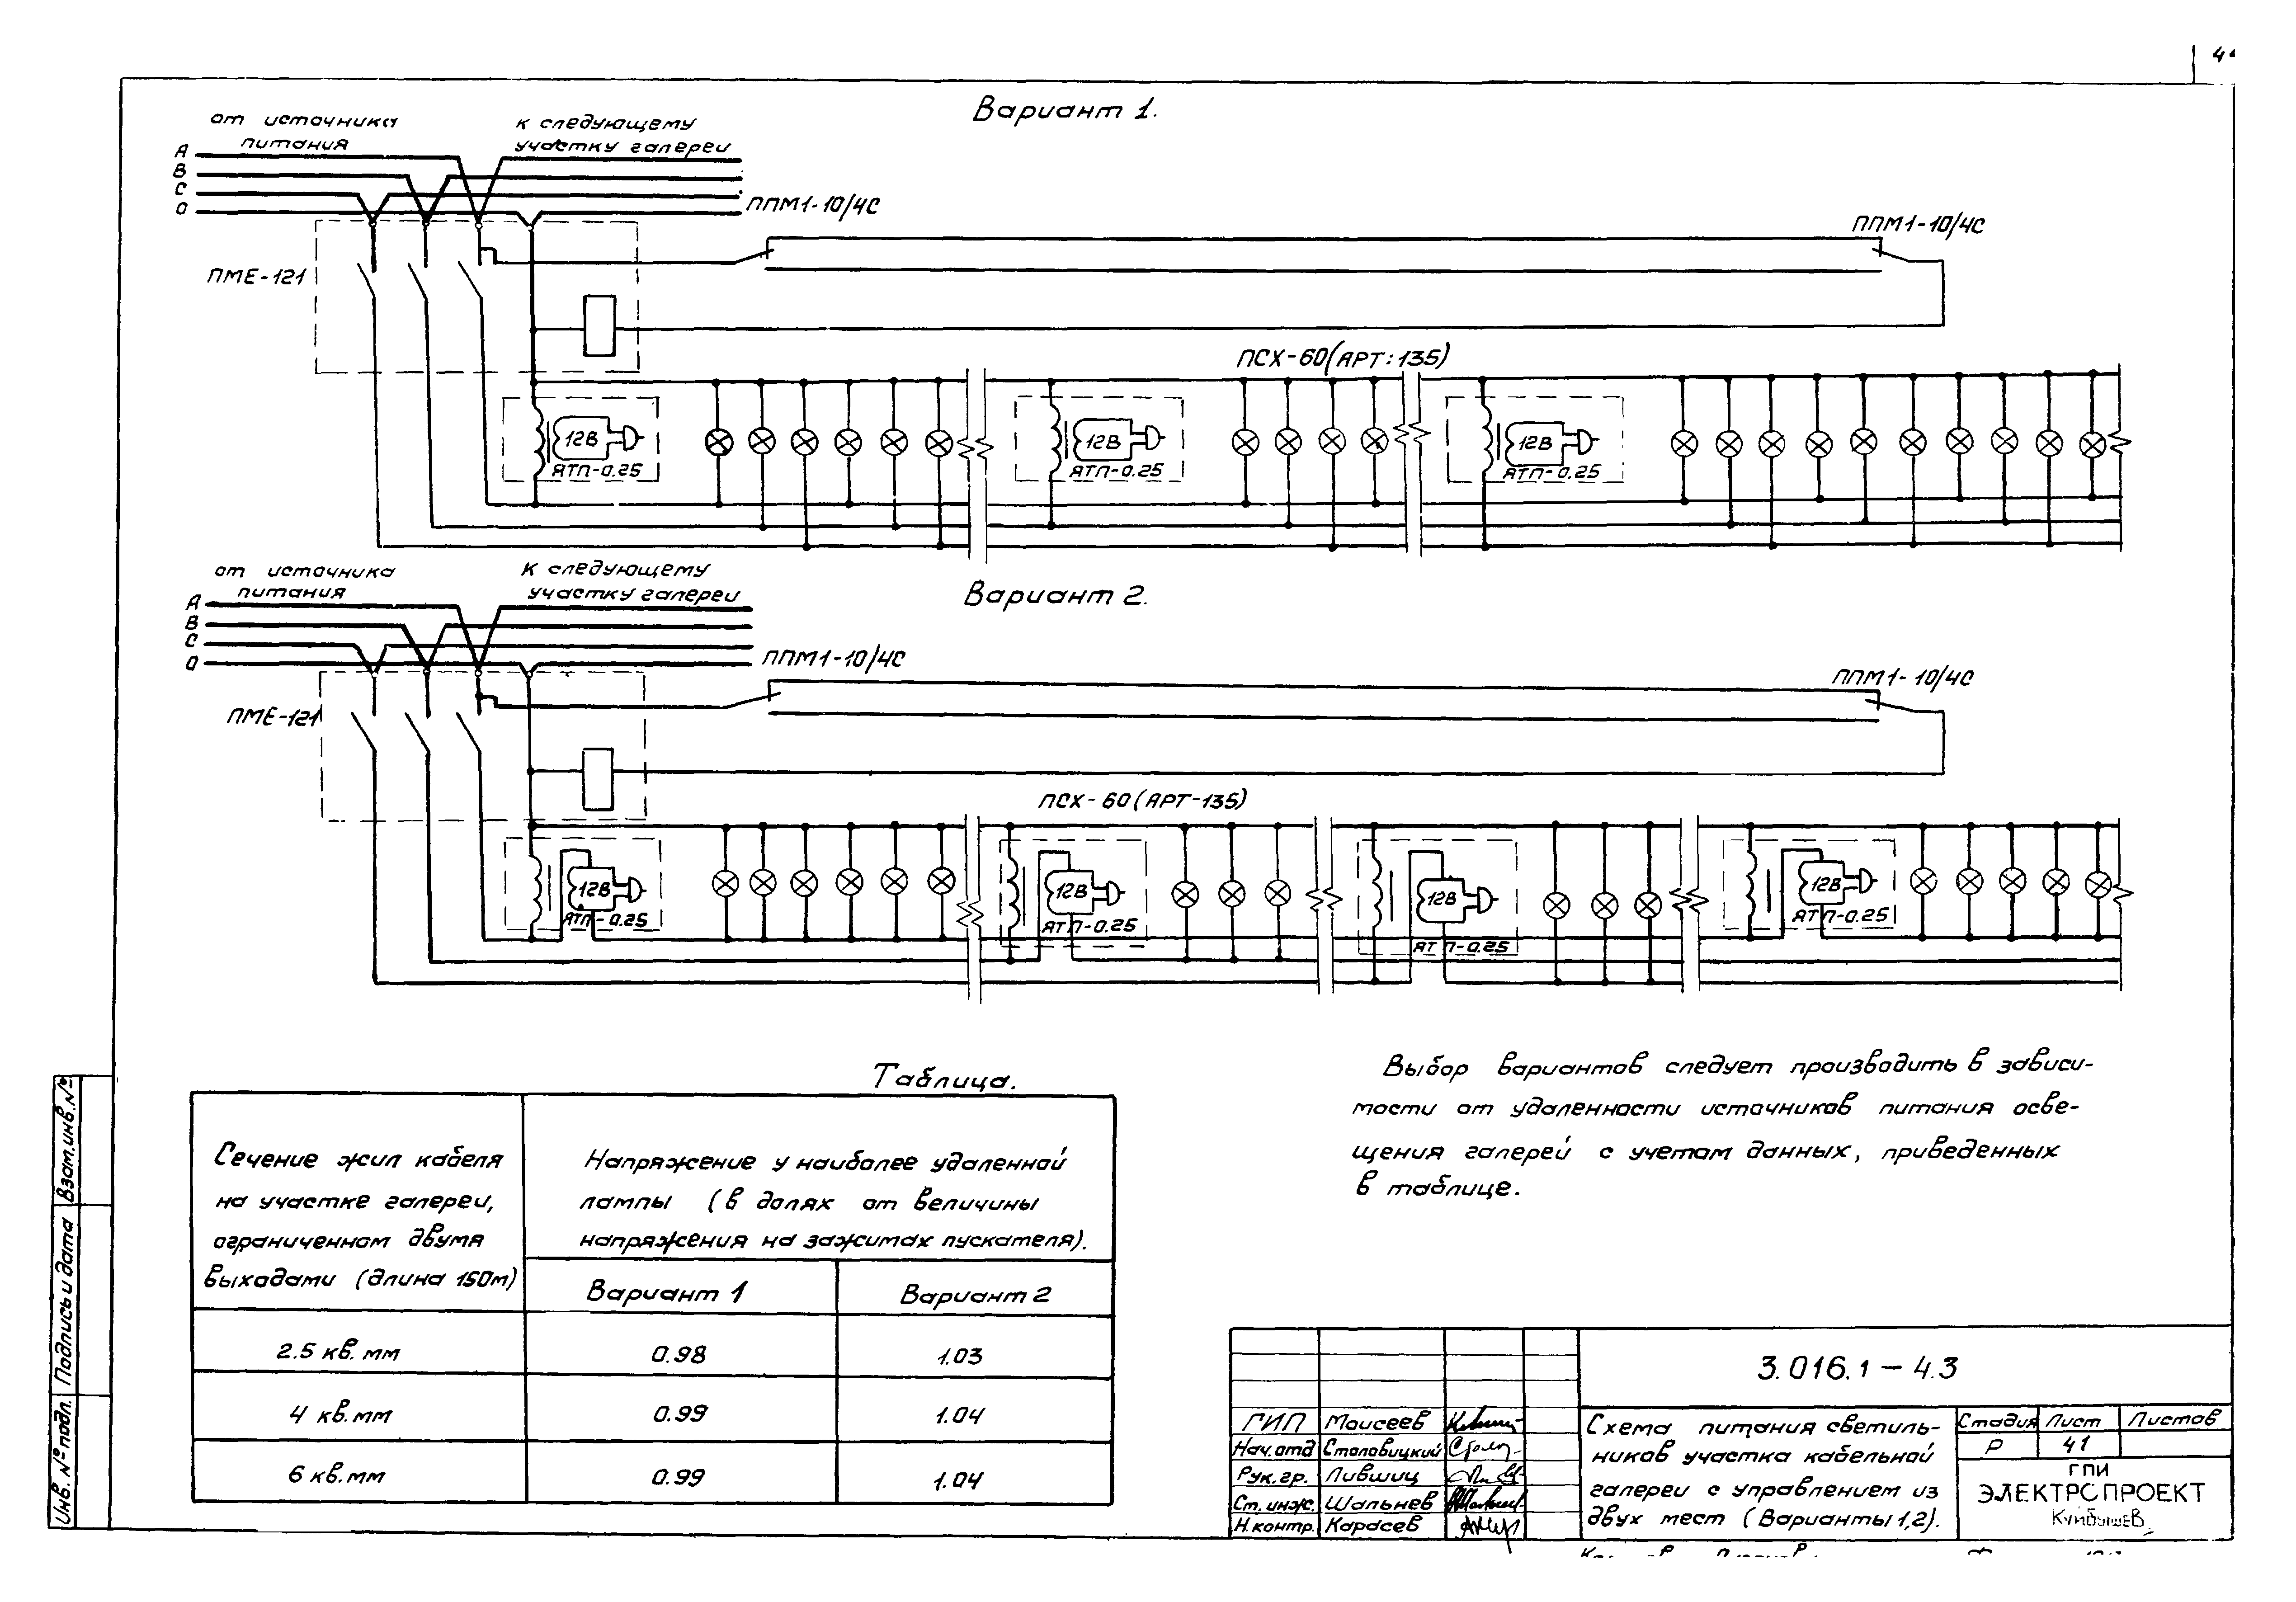 Вариант 1.
от источника
питания
к следующему
участку галереи
А
В
С
О
ППМ1-10/4С
ППМ1-10/4С
ПМЕ-121
ПСХ-60(АРТ:135)
12В
ЯТП-0.25
12В
ЯТП-0.25
12В
ЯТП-0.25
Вариант 2.
от источника
питания
к следующему
участку галереи
А
В
С
О
ППМ1-10/4С
ППМ1-10/4С
ПМЕ-121
ПСХ-60(АРТ-135)
12В
ЯТП-0.25
12В
ЯТП-0.25
12В
ЯТП-0.25
12В
ЯТП-0.25
Таблица.
Сечение жил кабеля
на участке галереи,
ограниченном двумя
выходами (длина 150м)
Напряжение у наиболее удаленной
лампы (в долях от величины
напряжения на зажимах пускателя).
Вариант 1
Вариант 2
2.5 кв.мм 0.98 1.03
4 кв.мм 0.99 1.04
6 кв.мм 0.99 1.04
Выбор вариантов следует производить в зависи-
мости от удаленности источников питания осве-
щения галерей с учетом данных, приведенных
в таблице.
Взам.инв.№
Подпись и дата
Инв. № подл.
ГИП Моисеев
Нач.отд Столовицкий
Рук.гр. Лившиц
Ст.инж. Шальнев
Н.контр. Карасев
3.016.1-4.3
Схема питания светиль-
ников участка кабельной
галереи с управлением из
двух мест (Варианты 1,2).
Стадия Лист Листов
Р 41
ГПИ
ЭЛЕКТРОПРОЕКТ
Куйбышев